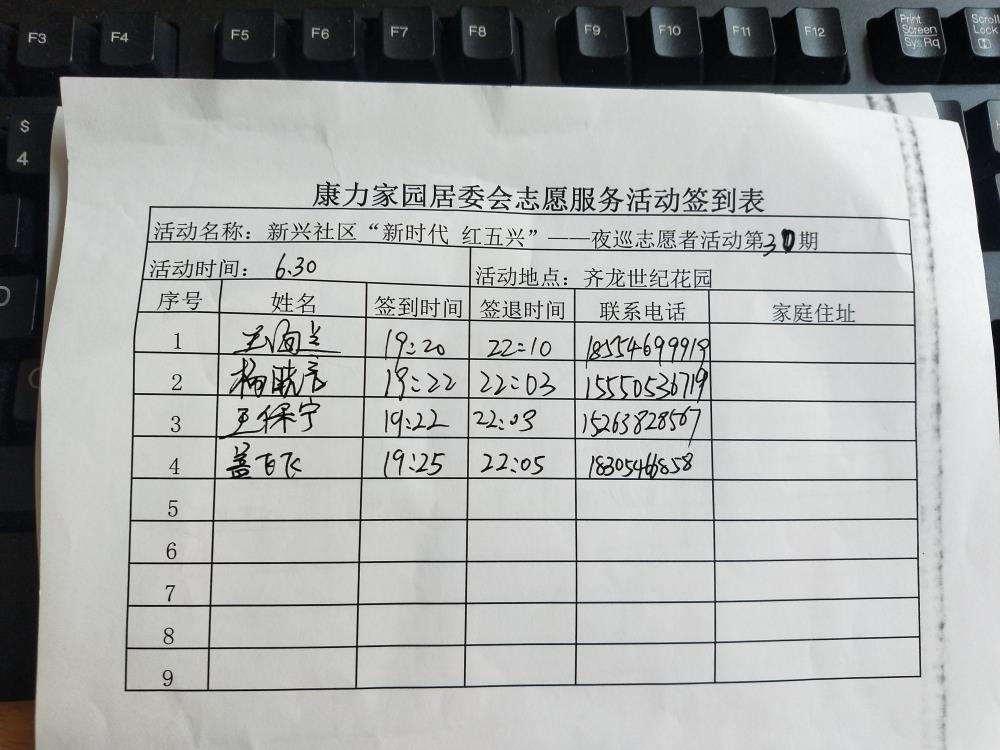 F3 F4 F5 F6 F7 F8 F9 F10 F11 F12 Print Screen SysRq Scroll Lock
$ 4
康力家园居委会志愿服务活动签到表
活动名称：新兴社区“新时代 红五兴”——夜巡志愿者活动第30期
活动时间：6.30 活动地点：齐龙世纪花园
序号 姓名 签到时间 签退时间 联系电话 家庭住址
1 19:20 22:10 18554699919
2 杨晓亮 19:22 22:03 15550536719
3 王保宁 19:22 22:03 15263828567
4 飞飞 19:25 22:05 18305466858
5
6
7
8
9